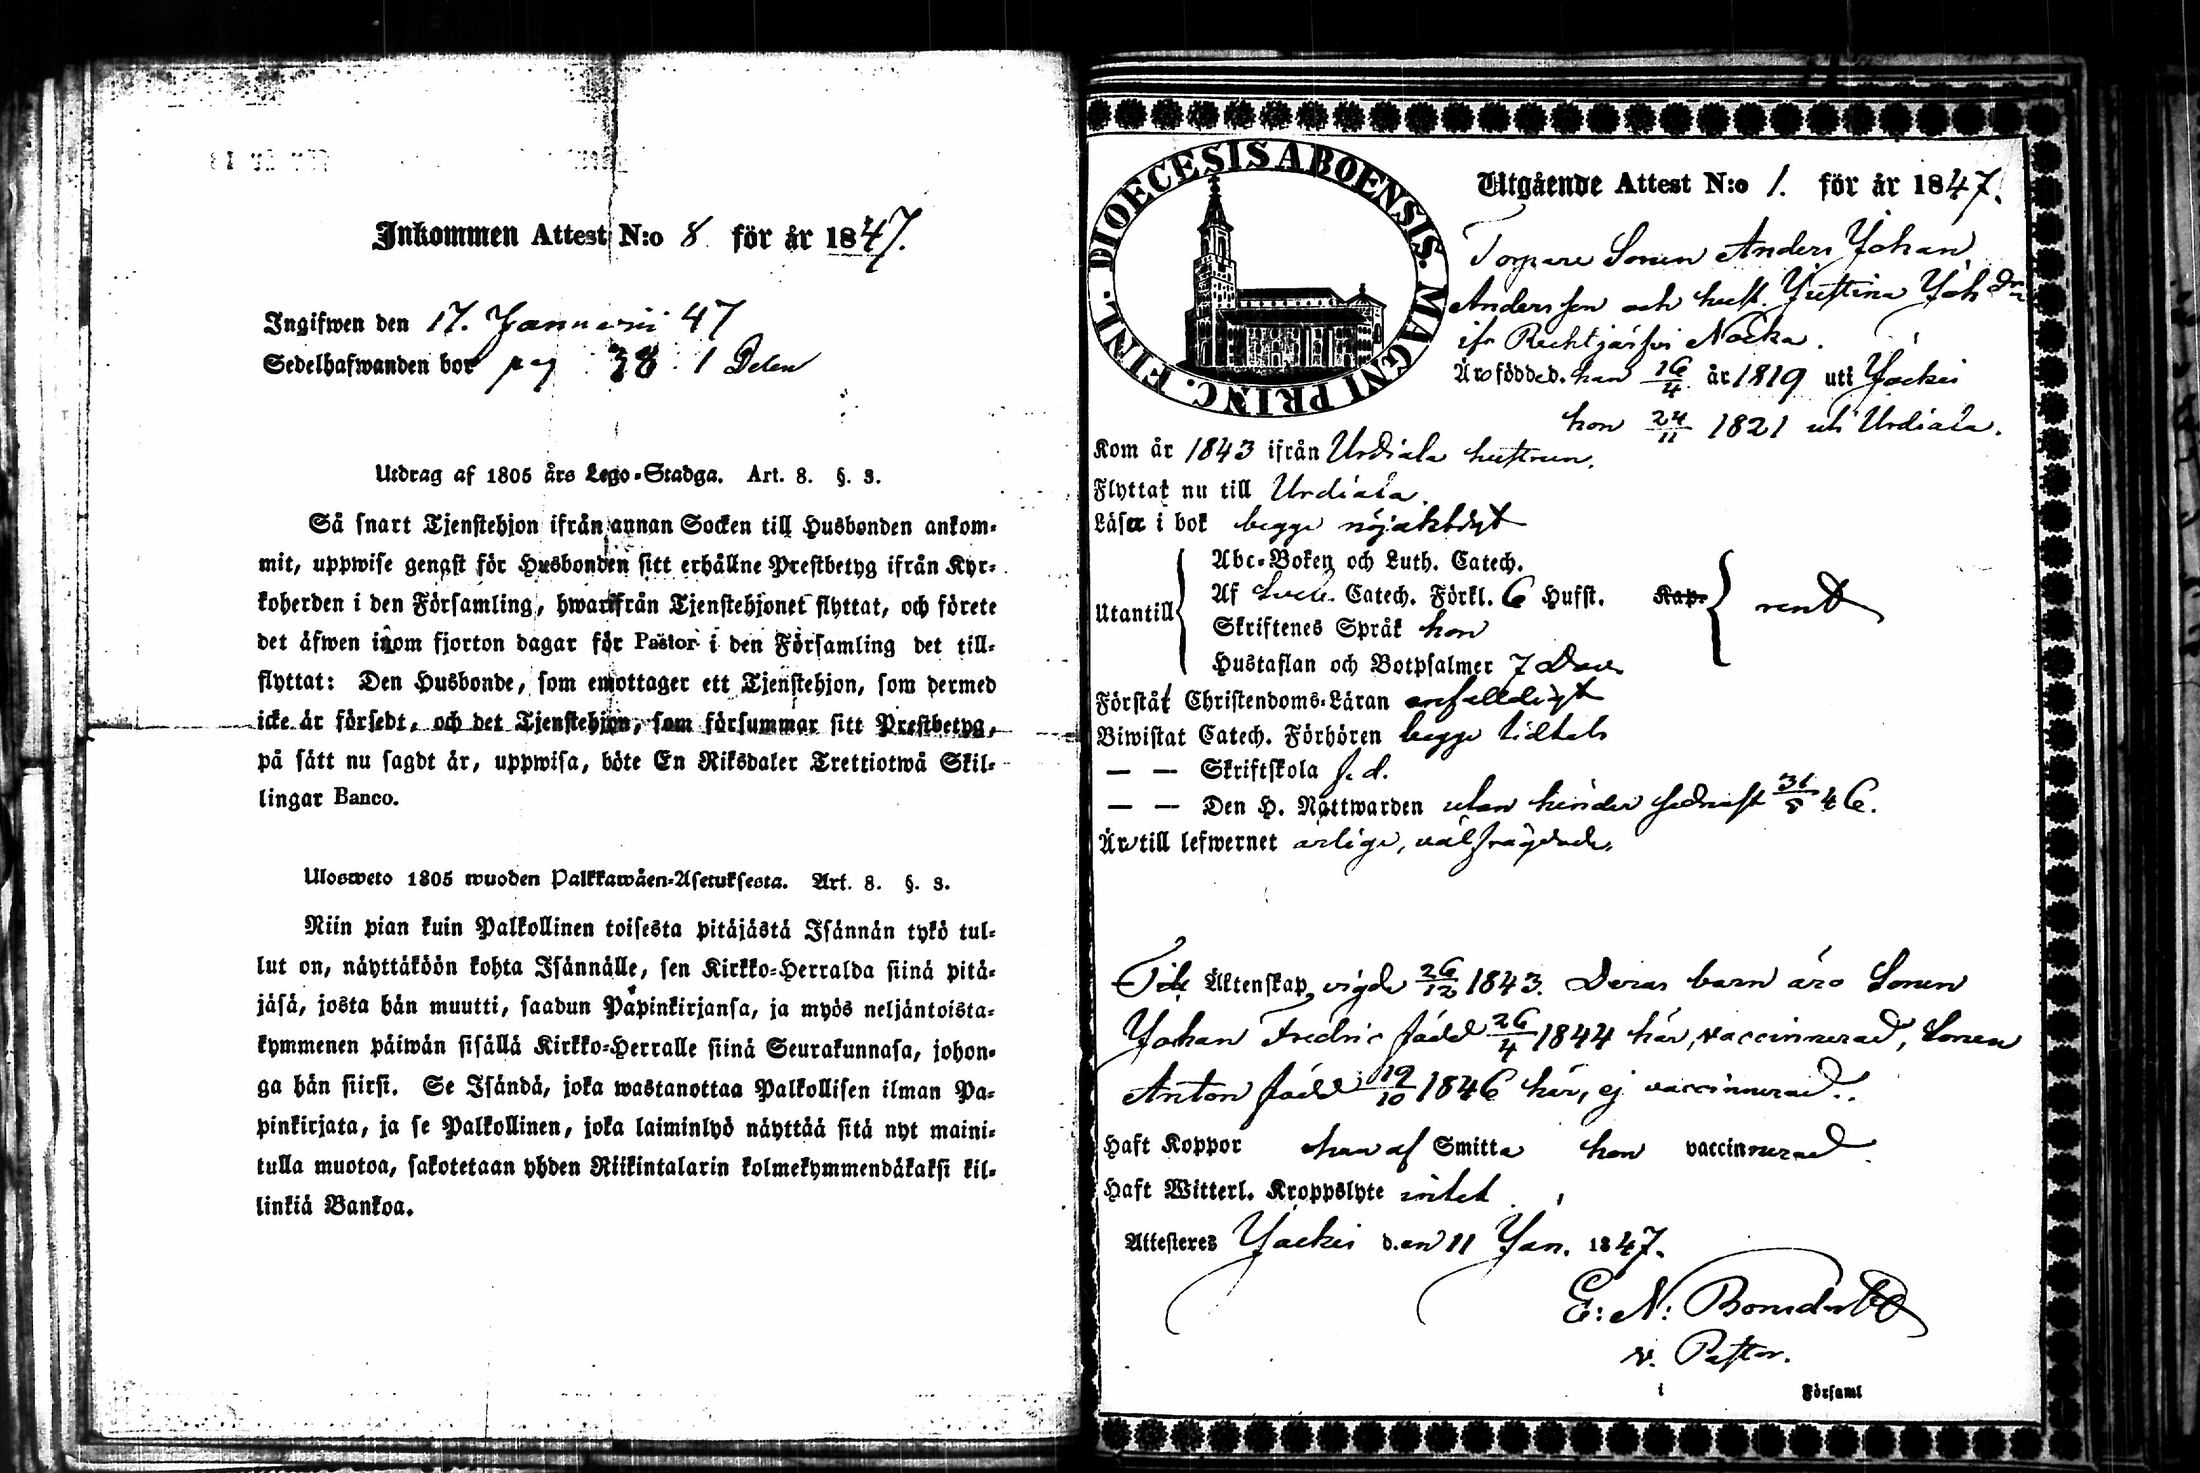 Inkommen Attest N:o 8 för år 1847.
Ingifwen den 17. Januarii 47
Sedelhafwanden bor pag 38. 1 Delen
Utdrag af 1805 års Lego-Stadga. Art. 8. §. 3.
Så snart Tjenstehjon ifrån annan Socken till Husbonden ankom-
mit, uppwise gengst för Husbonden sitt erhållne Prestbetyg ifrån Kyr-
koherden i den Församling, hwarifrån Tjenstehjonet flyttat, och förete
det äfwen inom fjorton dagar för Pastor i den Församling det till-
flyttat: Den Husbonde, som emottager ett Tjenstehjon, som dermed
icke är försedt, och det Tjenstehjon, som försummar sitt Prestbetyg,
på sätt nu sagdt är, uppwisa, böte En Riksdaler Trettiotwå Skil-
lingar Banco.
Ulosweto 1805 wuoden Palkkawäen-Asetuksesta. Art. 8. §. 3.
Niin pian kuin Palkollinen toisesta pitäjästä Isännän tykö tul-
lut on, näyttäköön kohta Isännälle, sen Kirkko-Herralda siinä pitä-
jäsä, josta hän muutti, saadun Papinkirjansa, ja myös neljäntoista-
kymmenen päiwän sisällä Kirkko-Herralle siinä Seurakunnasa, johon-
ga hän siirsi. Se Isändä, joka wastanottaa Palkollisen ilman Pa-
pinkirjata, ja se Palkollinen, joka laiminlyö näyttää sitä nyt maini-
tulla muotoa, sakotetaan yhden Riikintalarin kolmekymmendäkaksi kil-
linkiä Bankoa.
DIOECESIS ABOENSIS. MAGNI PRINC. FINL.
Utgående Attest N:o 1. för år 1847.
Torpare Sonen Anders Johan
Andersson och hust. Justina Joh dr
ifr Rechtjärfvi Nocka.
Äro födde d. han 16/4 år 1819 uti Jockis
hon 24/11 1821 uti Urdiala.
Kom år 1843 ifrån Urdiala hustrun.
Flyttat nu till Urdiala.
Läsa i bok begge nöjaktigt
Utantill
Abc-Boken och Luth. Catech.
Af Sveb. Catech. Förkl. 6 Hufst. Kap. rent
Skriftenes Språk hon
Hustaflan och Botpsalmer 7 Dav.
Förståt Christendoms-Läran enfalldigt
Biwistat Catech. Förhören begge tidtals
— — Skriftskola f. d.
— — Den H. Nattwarden utan hinder sednast 31/8 46.
Äro till lefwernet ärlige, välfrägdade.
Till Äktenskap, vigde 26/12 1843. Deras barn äro Sonen
Johan Fredric född 26/4 1844 här, vaccinnerad, Sonen
Anton född 19/10 1846 här, ej vaccinnerad.
Haft Koppor han af Smitta hon vaccinnerad
Haft Witterl. Kroppslyte intet
Attesteres Jockis d. en 11 Jan. 1847.
E: N: Bonsdorff
v. Pastor.
i Församl